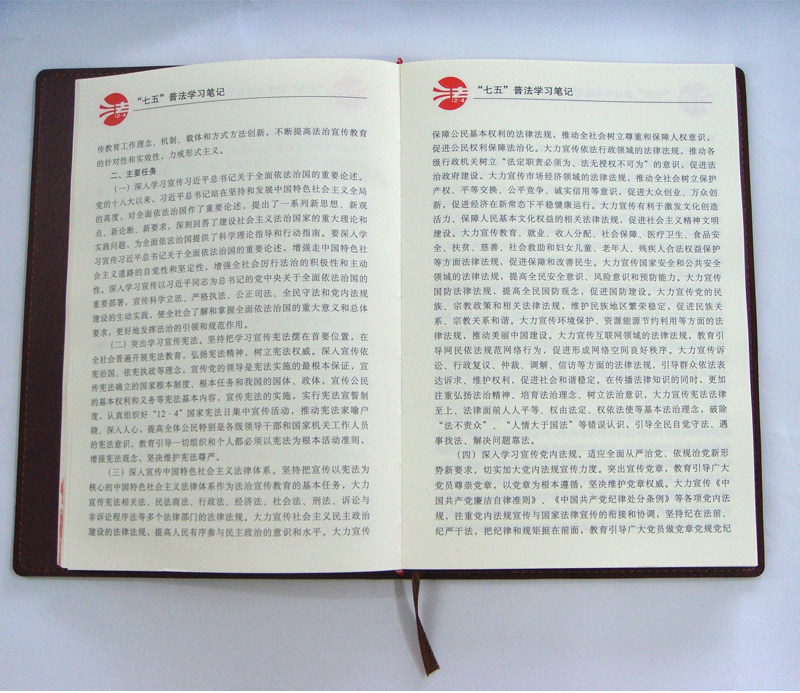 法
12·4
“七五”普法学习笔记
传教育工作理念、机制、载体和方式方法创新，不断提高法治宣传教育
的针对性和实效性，力戒形式主义。
二、主要任务
（一）深入学习宣传习近平总书记关于全面依法治国的重要论述。
党的十八大以来，习近平总书记站在坚持和发展中国特色社会主义全局
的高度，对全面依法治国作了重要论述，提出了一系列新思想、新观
点、新论断、新要求，深刻回答了建设社会主义法治国家的重大理论和
实践问题，为全面依法治国提供了科学理论指导和行动指南。要深入学
习宣传习近平总书记关于全面依法治国的重要论述，增强走中国特色社
会主义道路的自觉性和坚定性，增强全社会厉行法治的积极性和主动
性。深入学习宣传以习近平同志为总书记的党中央关于全面依法治国的
重要部署，宣传科学立法、严格执法、公正司法、全民守法和党内法规
建设的生动实践，使全社会了解和掌握全面依法治国的重大意义和总体
要求，更好地发挥法治的引领和规范作用。
（二）突出学习宣传宪法。坚持把学习宣传宪法摆在首要位置，在
全社会普遍开展宪法教育，弘扬宪法精神，树立宪法权威。深入宣传依
宪治国、依宪执政等理念，宣传党的领导是宪法实施的最根本保证，宣
传宪法确立的国家根本制度、根本任务和我国的国体、政体，宣传公民
的基本权利和义务等宪法基本内容，宣传宪法的实施，实行宪法宣誓制
度，认真组织好“12·4”国家宪法日集中宣传活动，推动宪法家喻户
晓、深入人心，提高全体公民特别是各级领导干部和国家机关工作人员
的宪法意识，教育引导一切组织和个人都必须以宪法为根本活动准则，
增强宪法观念，坚决维护宪法尊严。
（三）深入宣传中国特色社会主义法律体系。坚持把宣传以宪法为
核心的中国特色社会主义法律体系作为法治宣传教育的基本任务，大力
宣传宪法相关法、民法商法、行政法、经济法、社会法、刑法、诉讼与
非诉讼程序法等多个法律部门的法律法规。大力宣传社会主义民主政治
建设的法律法规，提高人民有序参与民主政治的意识和水平。大力宣传
法
12·4
“七五”普法学习笔记
保障公民基本权利的法律法规，推动全社会树立尊重和保障人权意识，
促进公民权利保障法治化。大力宣传依法行政领域的法律法规，推动各
级行政机关树立“法定职责必须为、法无授权不可为”的意识，促进法
治政府建设。大力宣传市场经济领域的法律法规，推动全社会树立保护
产权、平等交换、公平竞争、诚实信用等意识，促进大众创业、万众创
新，促进经济在新常态下平稳健康运行。大力宣传有利于激发文化创造
活力、保障人民基本文化权益的相关法律法规，促进社会主义精神文明
建设。大力宣传教育、就业、收入分配、社会保障、医疗卫生、食品安
全、扶贫、慈善、社会救助和妇女儿童、老年人、残疾人合法权益保护
等方面法律法规，促进保障和改善民生。大力宣传国家安全和公共安全
领域的法律法规，提高全民安全意识、风险意识和预防能力。大力宣传
国防法律法规，提高全民国防观念，促进国防建设。大力宣传党的民
族、宗教政策和相关法律法规，维护民族地区繁荣稳定，促进民族关
系、宗教关系和谐。大力宣传环境保护、资源能源节约利用等方面的法
律法规，推动美丽中国建设。大力宣传互联网领域的法律法规，教育引
导网民依法规范网络行为，促进形成网络空间良好秩序。大力宣传诉
讼、行政复议、仲裁、调解、信访等方面的法律法规，引导群众依法表
达诉求、维护权利，促进社会和谐稳定。在传播法律知识的同时，更加
注重弘扬法治精神、培育法治理念、树立法治意识，大力宣传宪法法律
至上、法律面前人人平等、权由法定、权依法使等基本法治理念，破除
“法不责众”、“人情大于国法”等错误认识，引导全民自觉守法、遇
事找法、解决问题靠法。
（四）深入学习宣传党内法规。适应全面从严治党、依规治党新形
势新要求，切实加大党内法规宣传力度。突出宣传党章，教育引导广大
党员尊崇党章，以党章为根本遵循，坚决维护党章权威。大力宣传《中
国共产党廉洁自律准则》、《中国共产党纪律处分条例》等各项党内法
规，注重党内法规宣传与国家法律宣传的衔接和协调，坚持纪在法前、
纪严于法，把纪律和规矩挺在前面，教育引导广大党员做党章党规党纪